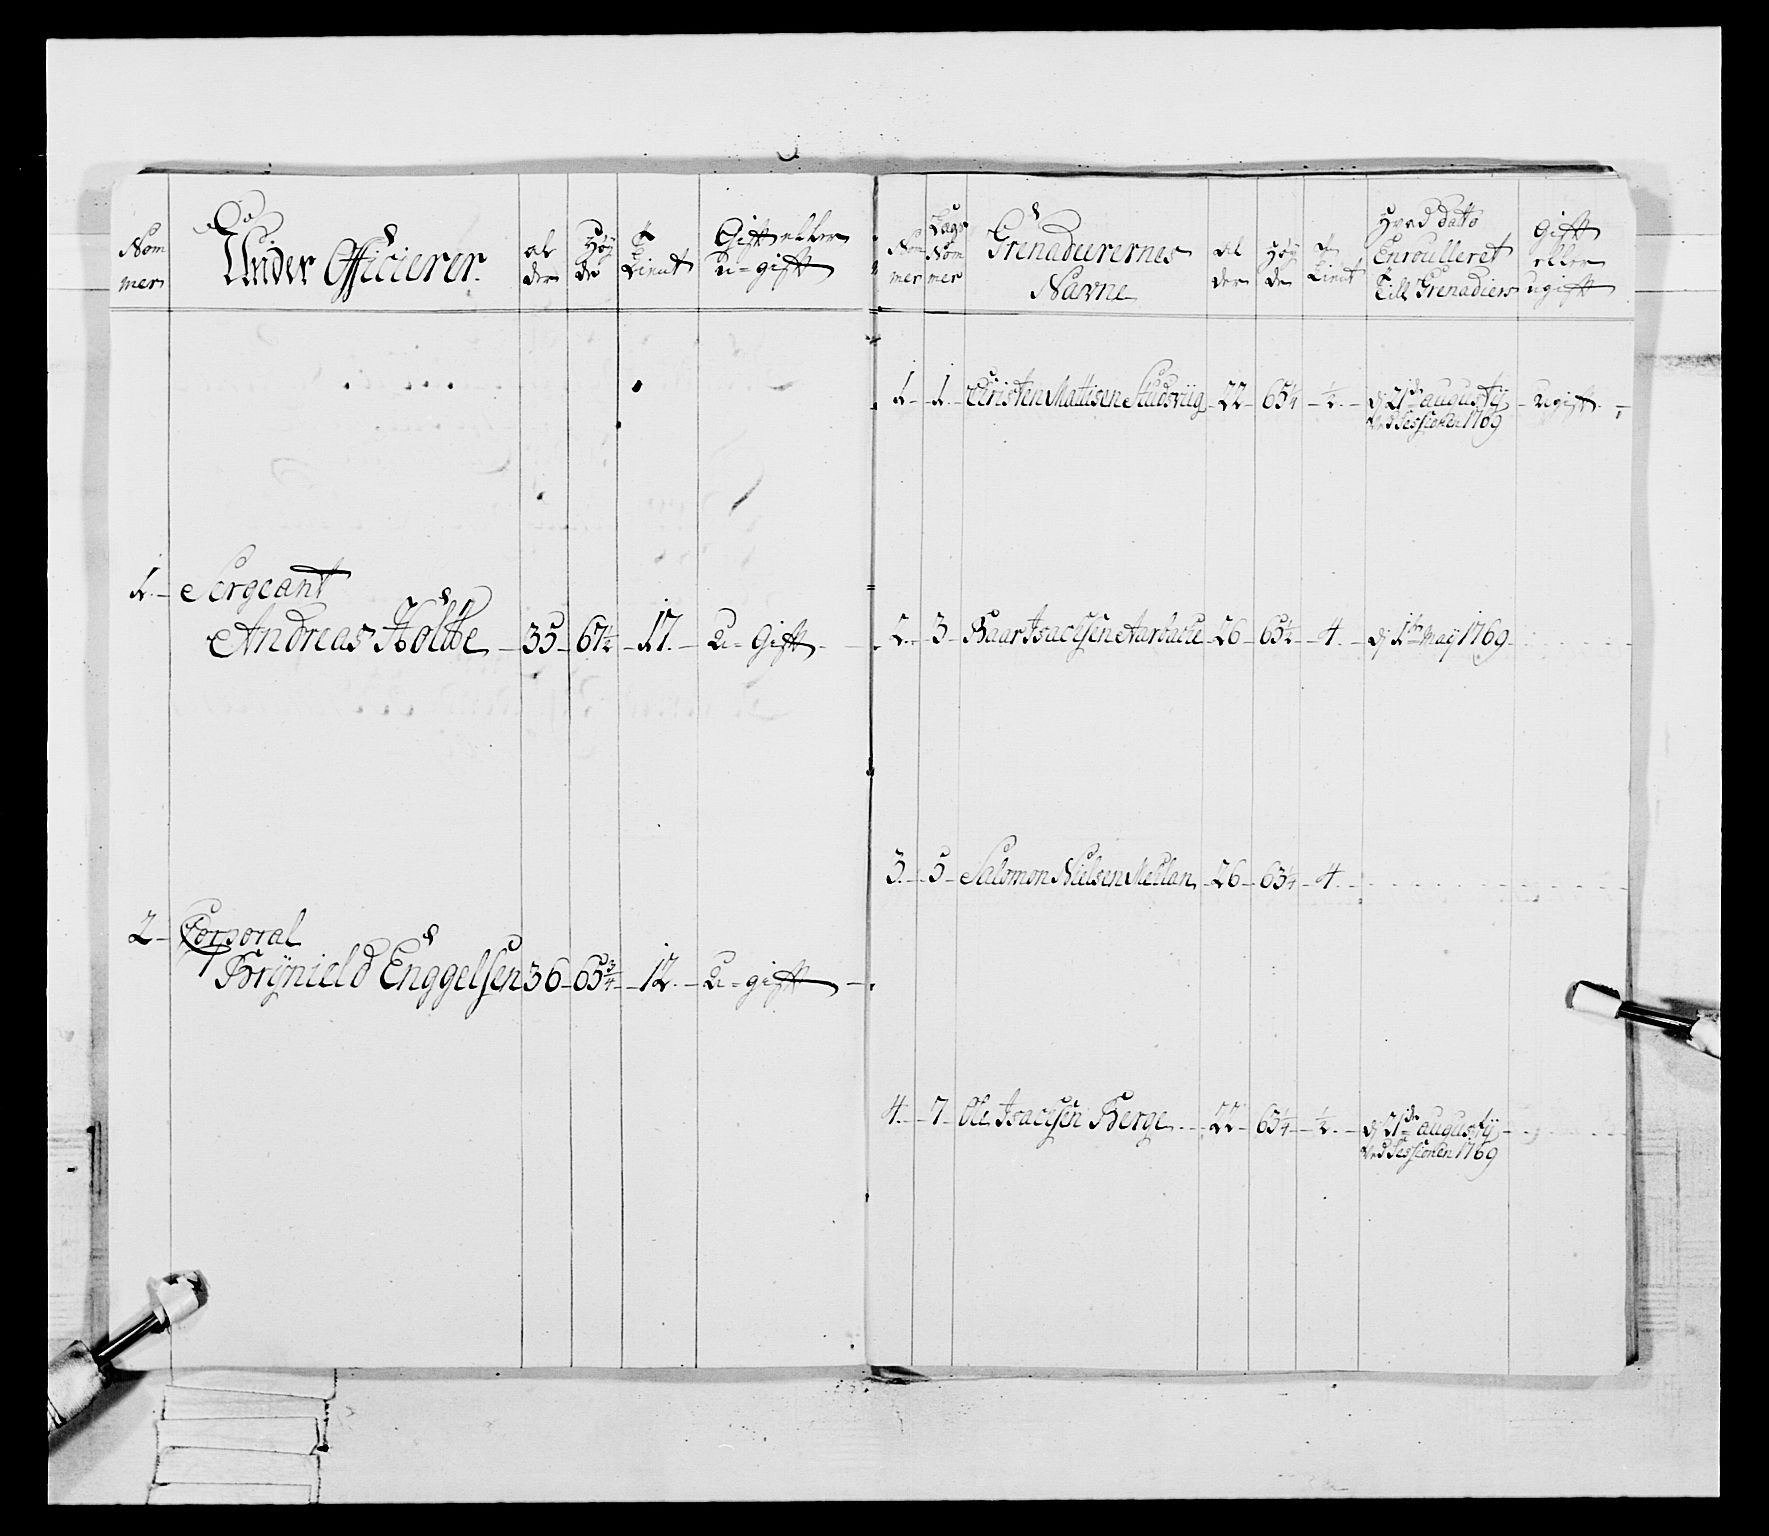 Nom
mer
Under Officierer.
al
der
Høy
de
Tienst
Gift eller
u-gift
1. Sergeant
Andreas Holtbe 35 67½ 17. U- Gift
2 Corporal
Brÿnield Enggelsen 36 65¾ 12. U- gift
Nom
mer
Lægs
Nom
mer
Grenadeerernes
Navne
al
der
Høy
de
Tienst
Hvad datto
Enroulleret
Till Grenadeer
Gift
eller
ugift
1. 1. Christen Mattisen Studsviig 22 65¼ ½ d 21de augustÿ ugift
Ved Sessionen 1769
2. 3 Baar Isachsen Aarbache 26 65½ 4. d 1te Maÿ 1769
3. 5 Salomon Nielsen Mehlan 26 63¼ 4.
4. 7 Ole Isachsen Berge 22 63¼ ½ d 21de augustÿ
Ved Sessionen 1769